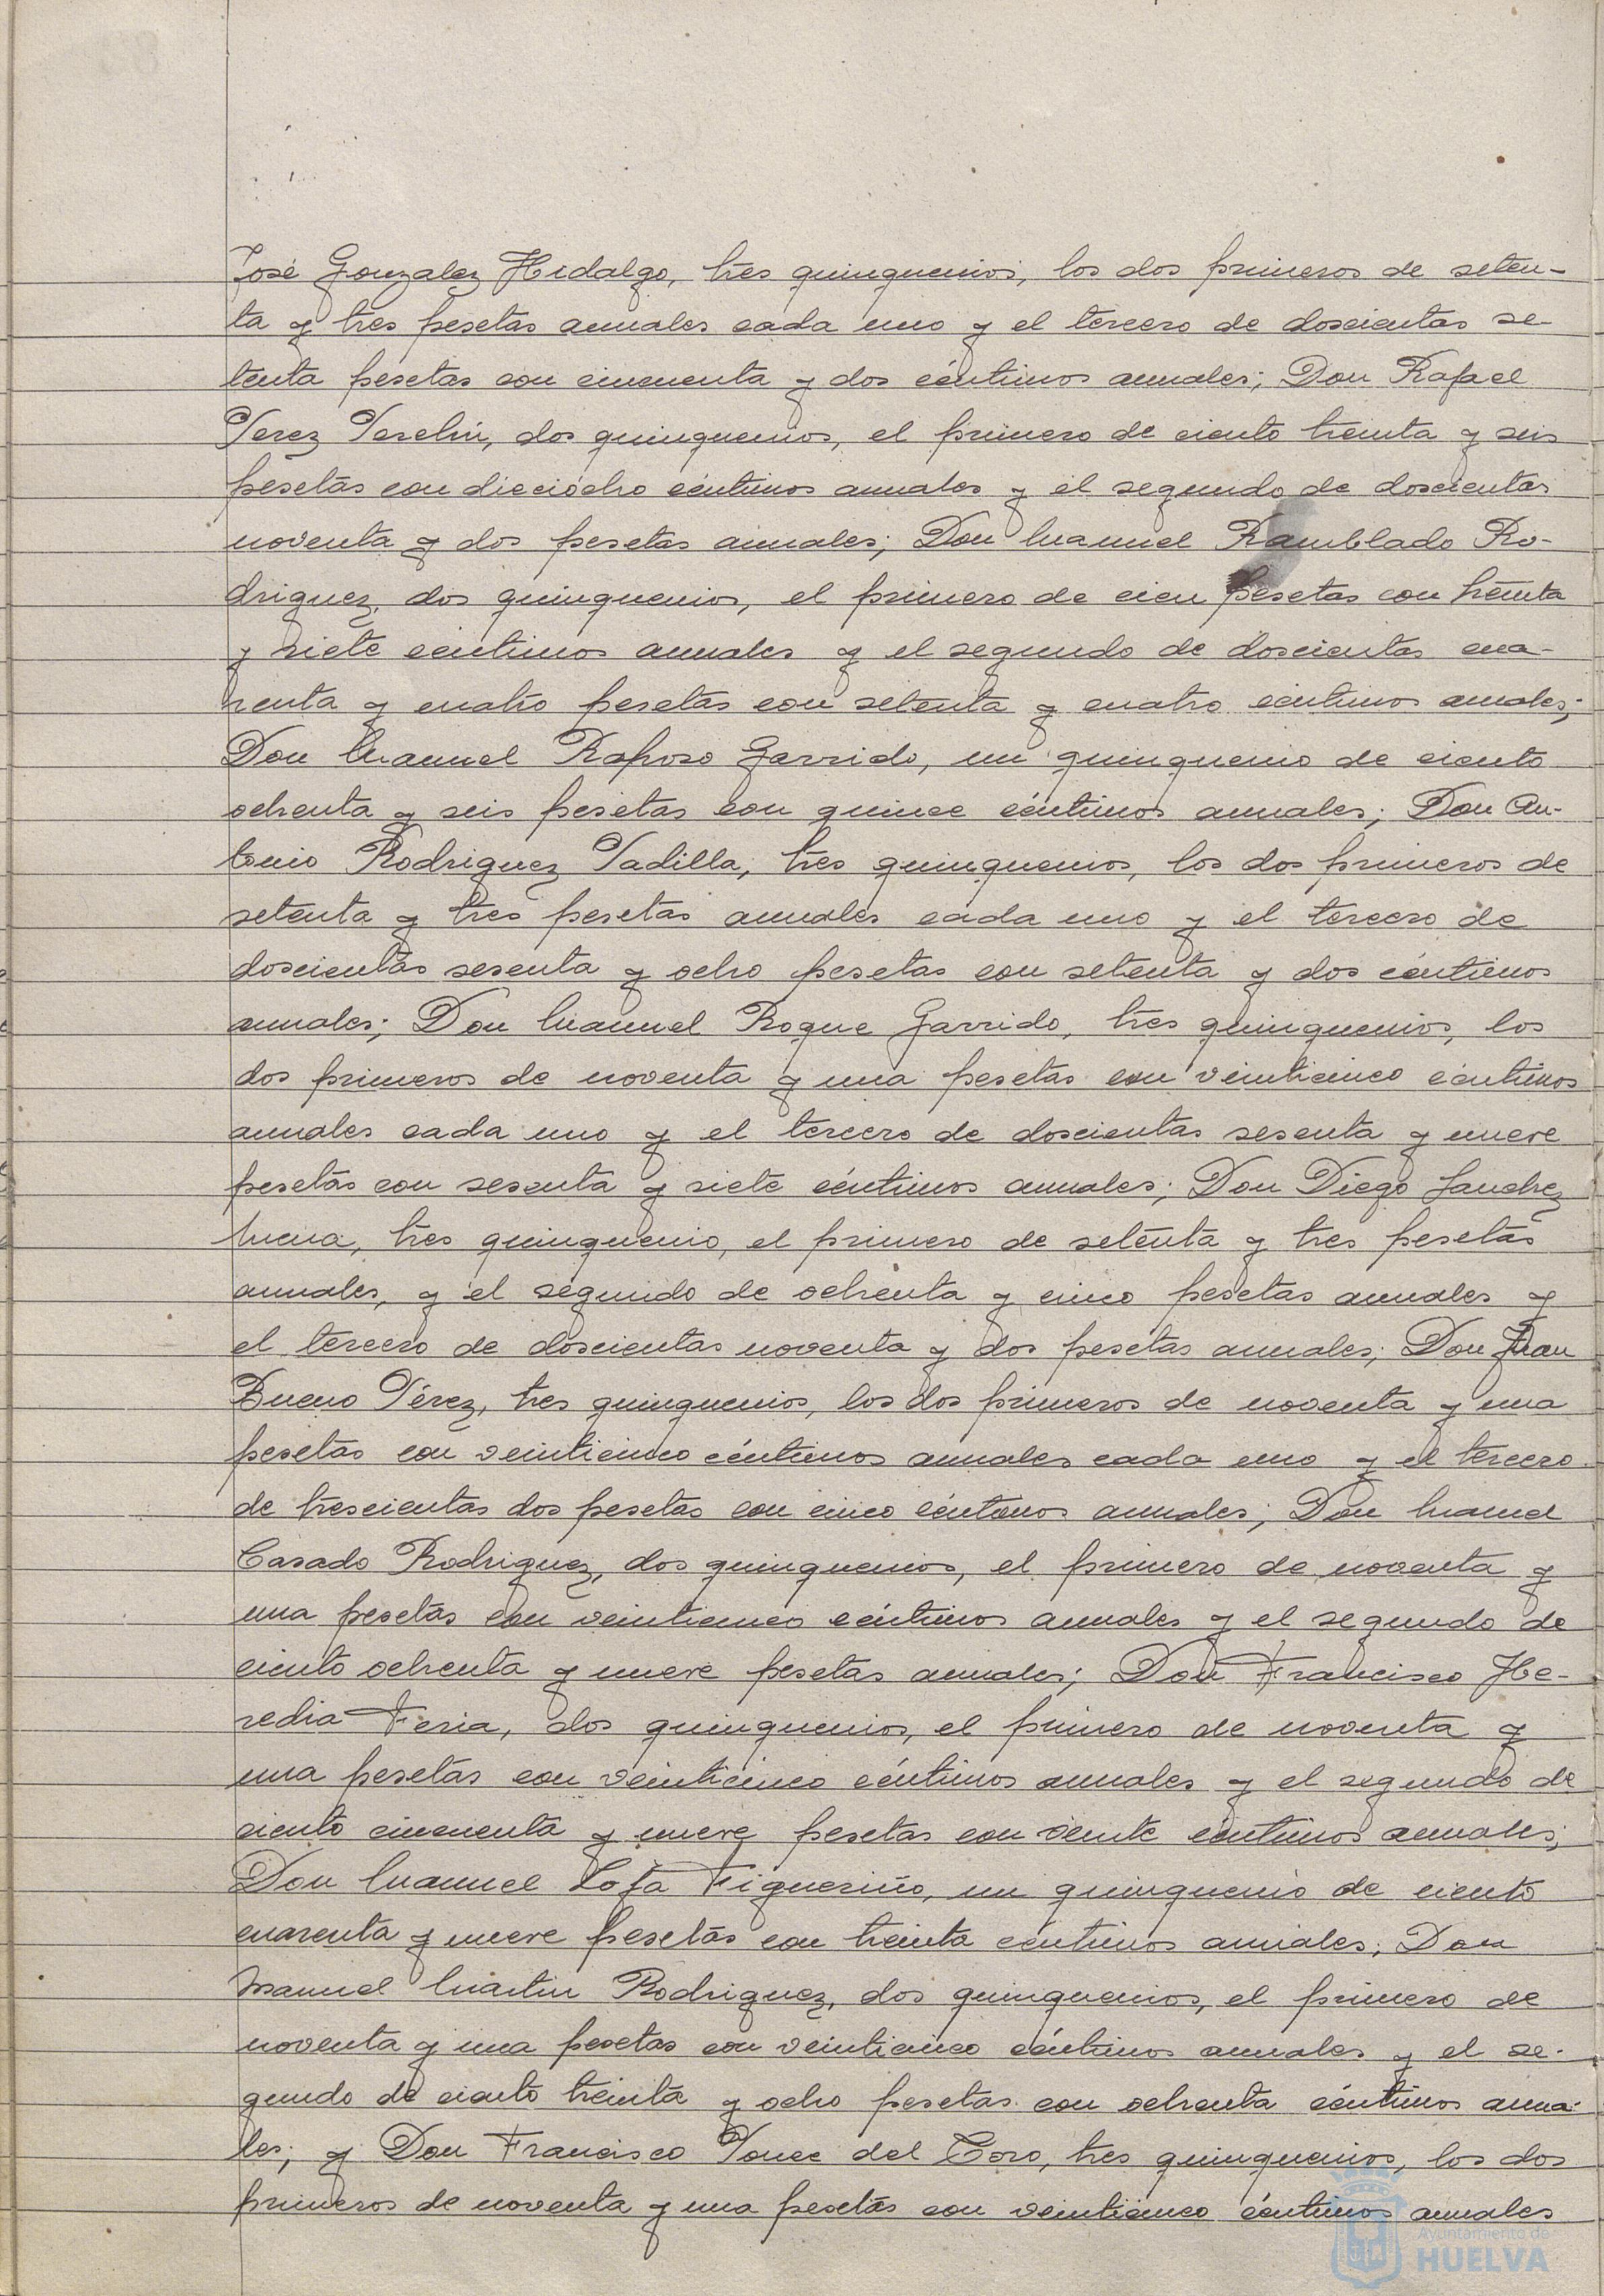 José Gonzalez Hidalgo, tres quinquenios, los dos primeros de seten-
ta y tres pesetas anuales cada uno y el tercero de doscientas se-
tenta pesetas con cincuenta y dos céntimos anuales; Don Rafael
Perez dos quinquenios, el primero de ciento treinta y seis
pesetas con dieciocho céntimos anuales y el segundo de doscientas
noventa y dos pesetas anuales; Don Manuel Ramblado Ro-
driguez, dos quinquenios, el primero de cien pesetas con treinta
y siete centimos anuales y el segundo de doscientas cua-
renta y cuatro pesetas con setenta y cuatro centimos anuales;
Don Manuel Raposo Garrido, un quinquenio de ciento
ochenta y seis pesetas con quince céntimos anuales; Don An-
tonio Rodriguez Padilla, tres quinquenios, los dos primeros de
setenta y tres pesetas anuales cada uno y el tercero de
doscientas sesenta y ocho pesetas con setenta y dos céntimos
anuales; Don Manuel Roque Garrido, tres quinquenios, los
dos primeros de noventa y una pesetas con veinticinco céntimos
anuales cada uno y el tercero de doscientas sesenta y nueve
pesetas con sesenta y siete céntimos anuales; Don Diego Sanchez
Mena, tres quinquenio, el primero de setenta y tres pesetas
anuales, y el segundo de ochenta y cinco pesetas anuales y
el tercero de doscientas noventa y dos pesetas anuales; Don Juan
Bueno Pérez, tres quinquenios, los dos primeros de noventa y una
pesetas con veinticinco céntimos anuales cada uno y el tercero
de trescientas dos pesetas con cinco céntimos anuales; Don Manuel
Casado Rodriguez, dos quinquenios, el primero de noventa y
una pesetas con veinticinco céntimos anuales y el segundo de
ciento ochenta y nueve pesetas anuales; Don Francisco He-
redia Feria, dos quinquenios, el primero de noventa y
una pesetas con veinticinco céntimos anuales y el segundo de
ciento cincuenta y nueve pesetas con veinte céntimos anuales;
Don Manuel Lofa Figueriño, un quinquenio de ciento
cuarenta y nueve pesetas con treinta céntimos anuales; Don
Manuel Martin Rodriguez, dos quinquenios, el primero de
noventa y una pesetas con veinticinco céntimos anuales y el se-
gundo de ciento treinta y ocho pesetas con ochenta céntimos anua-
les; y Don Francisco Ponce del Toro, tres quinquenios, los dos
primeros de noventa y una pesetas con veinticinco céntimos anuales
Ayuntamiento de
HUELVA